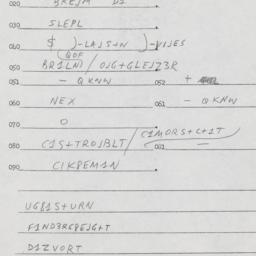 020 BREJM DI
030 SLEPL
040 $ )-LAJS+N )-VIJES
(QOF
050 BRILN) / OJG+GLEJZ3R
051 - QKNW 052 +
060 NEX 061 - QKNW
070 O
080 CIS+TROJBLT / CIMORS+C+IT
081 -
090 CIKPEMIN
UGBIS+URN
FIND3RGPEJG+T
DIZVORT